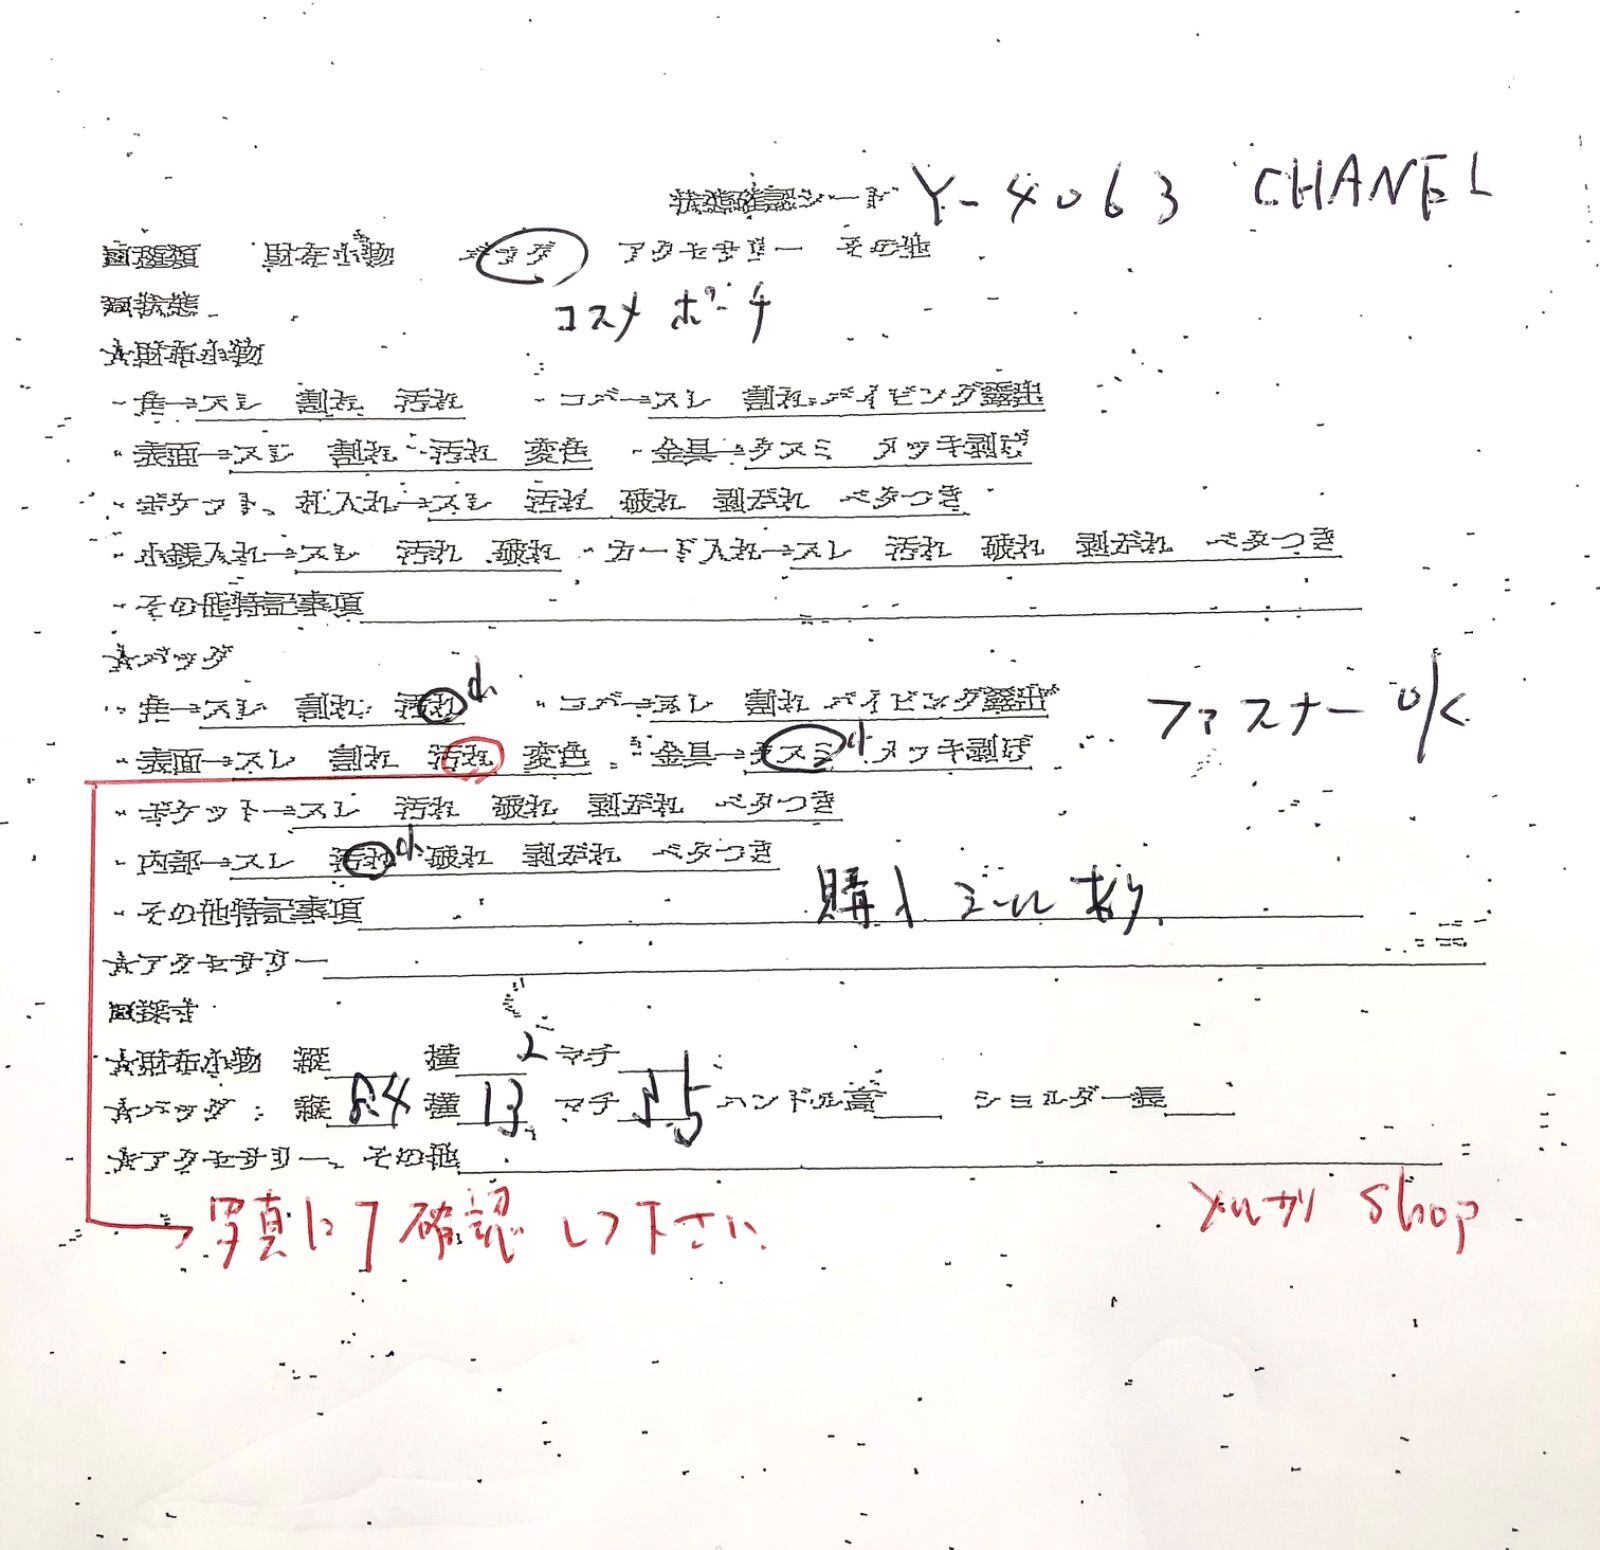 状態確認シート Y-4063 CHANEL
■種類 財布小物 バッグ アクセサリー その他
コスメポーチ
■状態
★財布小物
・角→スレ 割れ 汚れ ・コバ→スレ 割れ パイピング露出
・表面→スレ 割れ 汚れ 変色 ・金具→クスミ メッキ剥げ
・ポケット、札入れ→スレ 汚れ 破れ 剥がれ ベタつき
・小銭入れ→スレ 汚れ 破れ ・カード入れ→スレ 汚れ 破れ 剥がれ ベタつき
・その他特記事項
★バッグ
・角→スレ 割れ 汚れ 小 ・コバ→スレ 割れ パイピング露出 ファスナーOK
・表面→スレ 割れ 汚れ 変色 ・金具→クスミ 小 メッキ剥げ
・ポケット→スレ 汚れ 破れ 剥がれ ベタつき
・内部→スレ 汚れ 小 破れ 剥がれ ベタつき
・その他特記事項 購入シール有り
★アクセサリー
■採寸
★財布小物 縦 横 マチ
★バッグ 縦 8.4 横 13 マチ ハンドル高 ショルダー長
★アクセサリー、その他
写真にて確認して下さい メルカリ shop